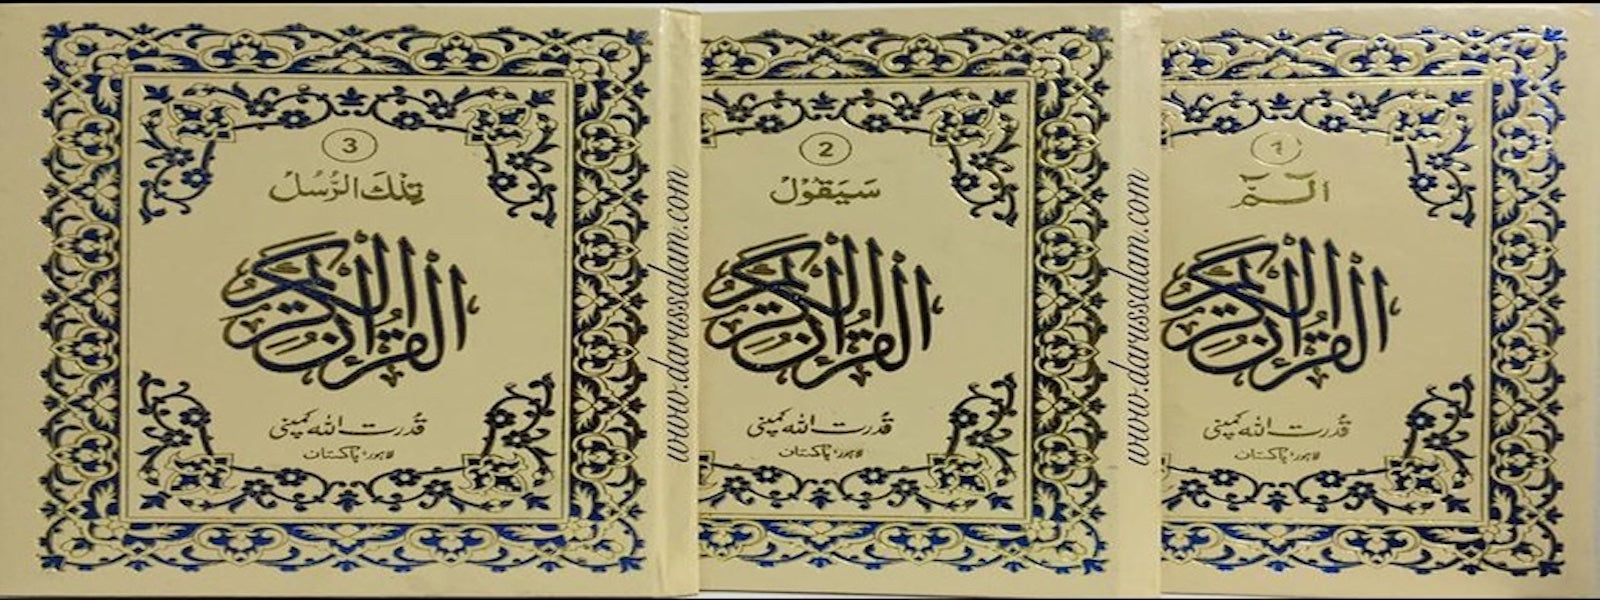 1
الٓمّٓ
القرآن الكريم
قدرت اللہ کمپنی
لاہور، پاکستان
www.darussalam.com
2
سَيَقُوْلُ
القرآن الكريم
قدرت اللہ کمپنی
لاہور، پاکستان
www.darussalam.com
3
تِلْكَ الرُّسُلُ
القرآن الكريم
قدرت اللہ کمپنی
لاہور، پاکستان